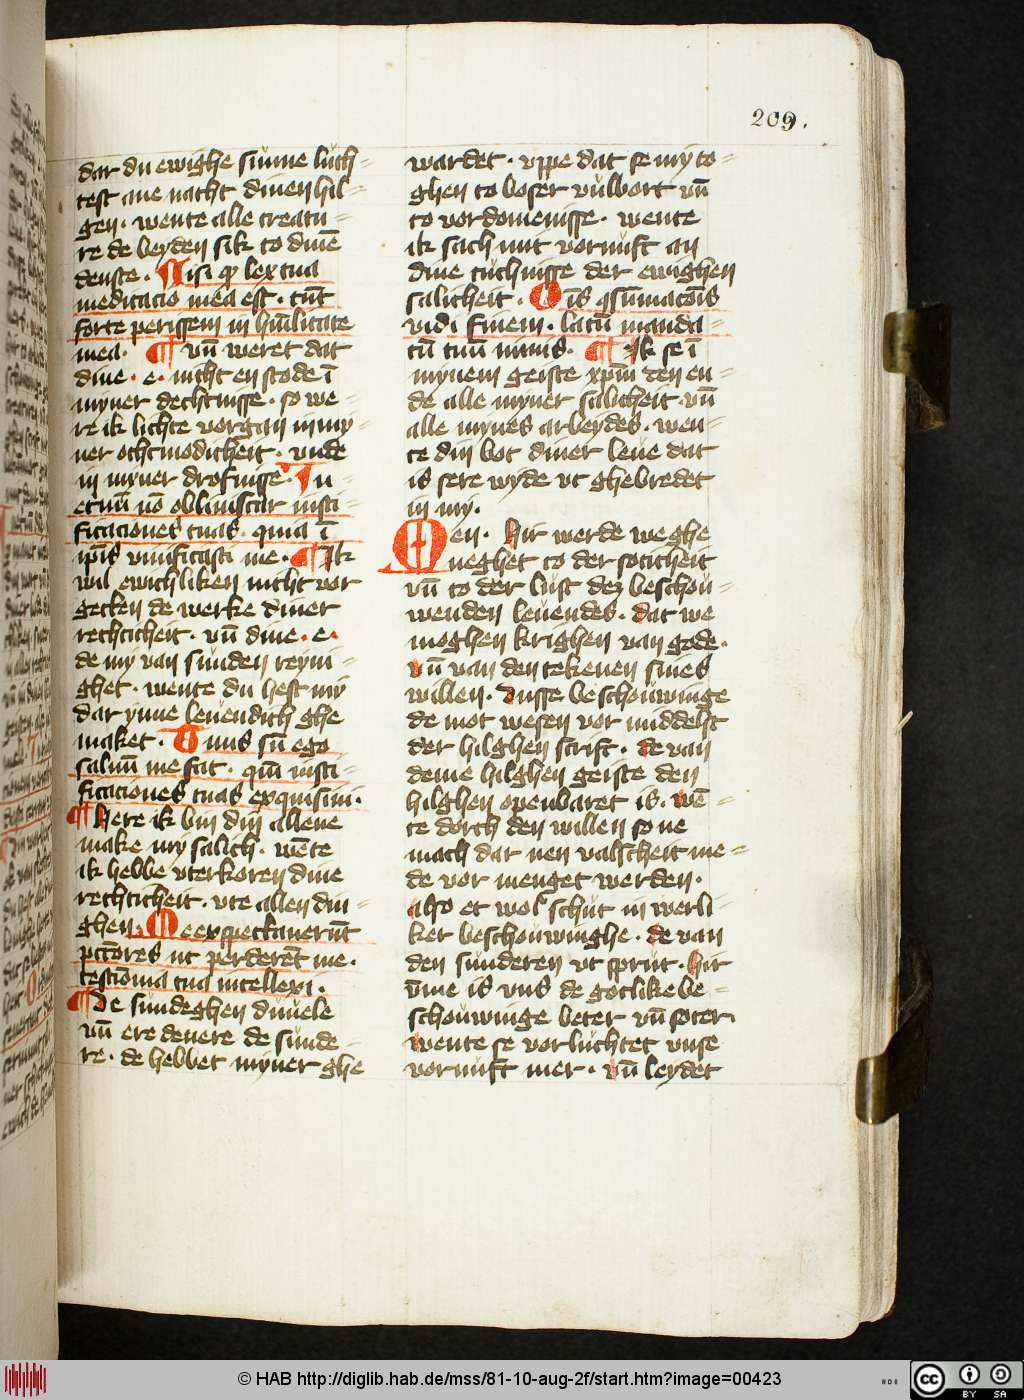 209.
dar du ewighe sunne luch=
test ane nacht dinen hil=
gen · wente alle creatu=
re de beyden sik to dinē
denste · Nisi qꝫ lex tua
meditacio mea est · tūt
forte perissem in hūilitate
mea · ¶ vn̄ weret dat
dine · e · nicht en stode ī
myner dechtnisse · so we=
re ik lichte vorgan in my=
ner othmodicheit · vnde
in myner drofnisse · In
etnū nō obliuiscar iusti=
ficaciones tuas · quia ī
ip̄is viuificasti me · ¶ Ik
wil ewichliken nicht vor
getten de werke diner
rechticheit · vn̄ dine · e ·
de my van sunden reyni=
ghet · wente du hest my
dar ynne leuendich ghe
maket · Tuus sū ego
saluū me fac · qm̄ iusti=
ficaciones tuas exquisiui ·
¶ Here ik bin din allene
make my salich · wēte
ik hebbe vterkoren dine
rechticheit · vte allen din=
ghen · Me expectauerūt
pctōres ut perderēt me ·
testiōnia tua intellexi ·
¶ De sundeghen duuele
vn̄ ere denere de sunde=
re · de hebbet myner ghe
wardet · vppe dat se my to=
ghen to boser vulbort vn̄
to vordomenisse · wente
ik sach mit vornuft an
dine tuchnisse der ewighen
salicheit · Ois ꝯsūmacōis
vidi finem · latū manda=
tū tuū nimis · ¶ Ik se ī
mynem geiste xp̄m den en=
de alle myner salicheit vn̄
alle mynes arbeydes · wen=
te din bot diner leue dat
is sere wyde vt ghebredet
in my ·
Men · Hir werde we ghe
neghet to der soticheit
vn̄ to der lust des beschou=
wenden leuendes · dat we
moghen krighen van gode ·
vn̄ van den tekenen sines
willen · Dusse beschouwinge
de mot wesen vor middelst
der hilghen scrift · de van
deme hilghen geiste den
hilghen openbaret is · wē=
te dorch den willen so ne
mach dar nen valscheit me=
de vor menget werden ·
also et wol schut in werli=
ker beschouwinghe · de van
den sunderen vt sprut · Hir
v̄me is vns de gotlike be=
schouwinge beter vn̄ soter
wente se vorluchtet vnse
vornuft mer · vn̄ leydet
© HAB http://diglib.hab.de/mss/81-10-aug-2f/start.htm?image=00423
cc BY SA